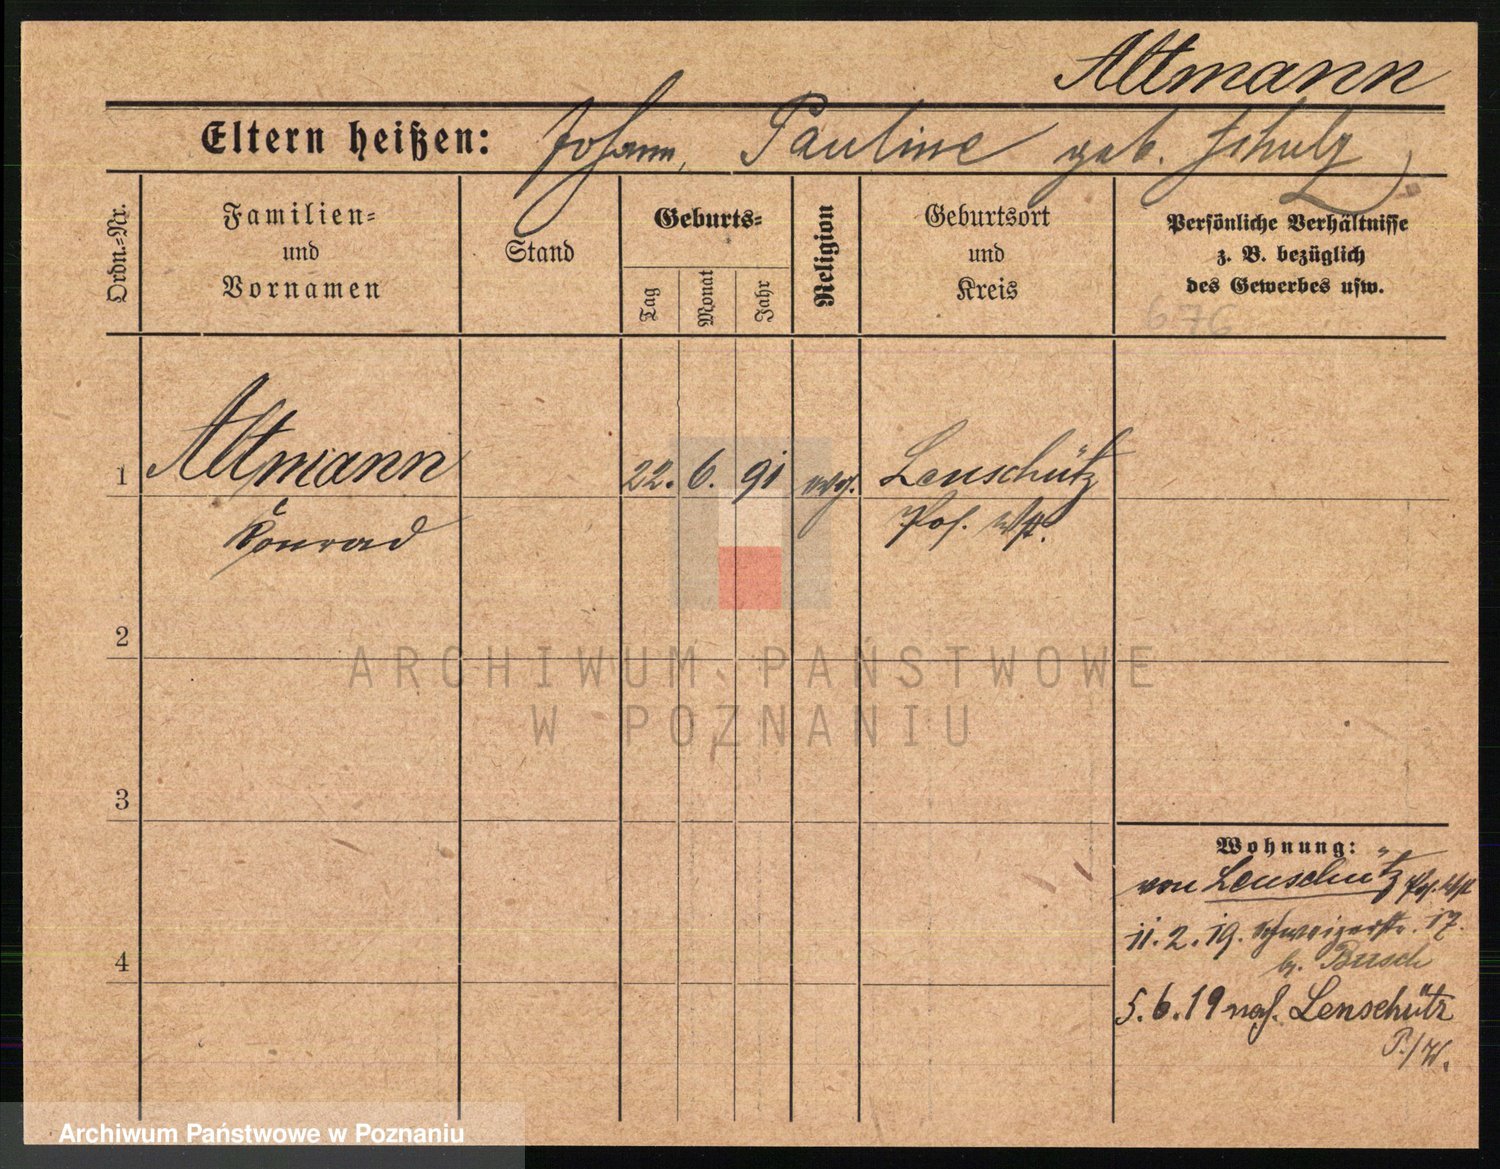 Altmann
Eltern heißen: Johann, Pauline geb. Schulz
Ordn.=Nr.
Familien=
und
Vornamen
Stand
Geburts=
Tag
Monat
Jahr
Religion
Geburtsort
und
Kreis
Persönliche Verhältnisse
z. B. bezüglich
des Gewerbes usw.
676
1 Altmann 22. 6. 91 evgl. Lenschütz
Konrad Pos. Wst.
2
ARCHIWUM PAŃSTWOWE
W POZNANIU
3
Wohnung:
von Lenschütz Pos. Wst
11.2.19. Schweizerstr. 17.
4
b. Busch
5.6.19 nach Lenschütz
P./W.
Archiwum Państwowe w Poznaniu